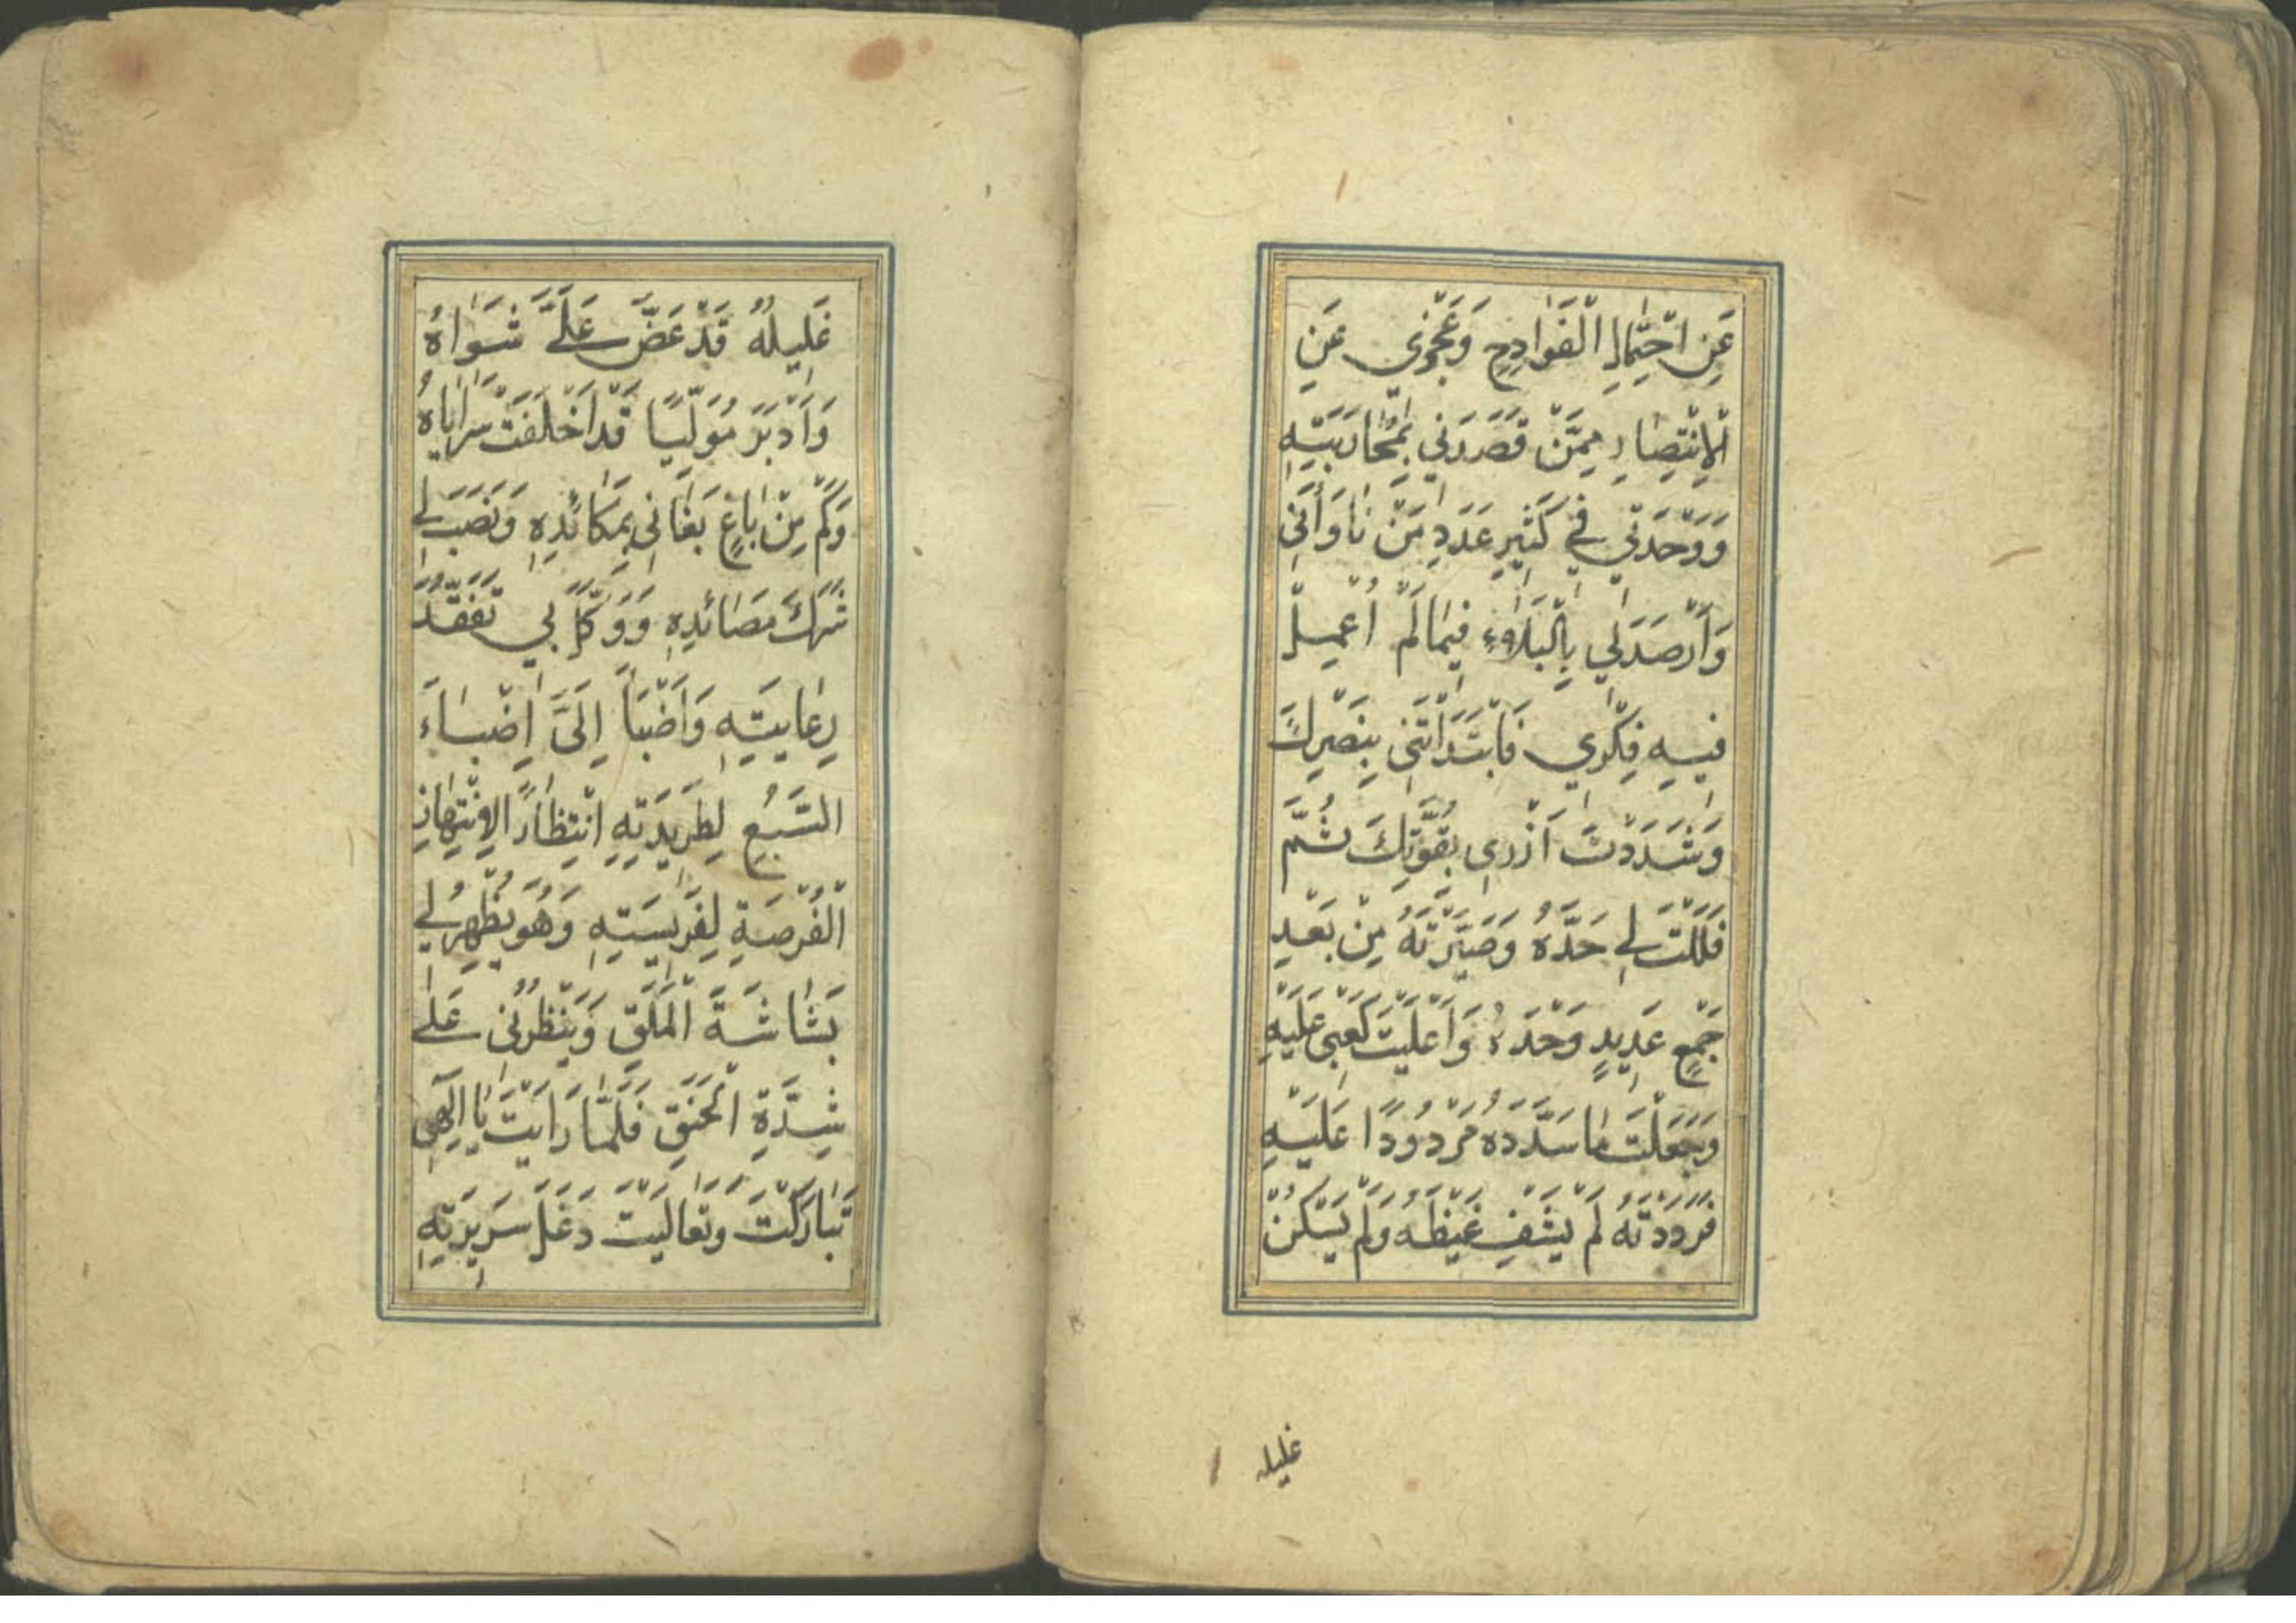 عَنِ احْتِمَالِ الْفَوَادِحِ وَعَجْزِي عَنِ
الْاِنْتِصَارِ مِمَّنْ قَصَدَنِي بِمُحَارَبَتِهِ
وَوَحْدَتِي فِي كَثِيرِ عَدَدِ مَنْ نَاوَأَنِي
وَأَرْصَدَ لِي بِالْبَلَاۤءِ فِيمَا لَمْ أُعْمِلْ
فِيهِ فِكْرِي فَابْتَدَأْتَنِي بِنَصْرِكَ
وَشَدَدْتَ أَزْرِي بِقُوَّتِكَ ثُمَّ
فَلَلْتَ لِي حَدَّهُ وَصَيَّرْتَهُ مِنْ بَعْدِ
جَمْعٍ عَدِيدٍ وَحْدَهُ وَأَعْلَيْتَ كَعْبِي عَلَيْهِ
وَجَعَلْتَ مَا سَدَّدَهُ مَرْدُودًا عَلَيْهِ
فَرَدَدْتَهُ لَمْ يَشْفِ غَيْظَهُ وَلَمْ يَسْكُنْ
غليله
غَلِيلُهُ قَدْ عَضَّ عَلَىَّ شَوَاهُ
وَأَدْبَرَ مُوَلِّيًا قَدْ أَخْلَفَتْ سَرَايَاهُ
وَكَمْ مِنْ بَاغٍ بَغَانِي بِمَكَائِدِهِ وَنَصَبَ لِي
شَرَكَ مَصَائِدِهِ وَوَكَّلَ بِي تَفَقُّدَ
رِعَايَتِهِ وَأَضْبَأَ إِلَىَّ إِضْبَاءَ
السَّبُعِ لِطَرِيدَتِهِ انْتِظَارًا لِانْتِهَازِ
الْفُرْصَةِ لِفَرِيسَتِهِ وَهُوَ يُظْهِرُ لِي
بَشَاشَةَ الْمَلَقِ وَيَنْظُرُنِي عَلَى
شِدَّةِ الْحَنَقِ فَلَمَّا رَأَيْتَ يَا إِلَهِي
تَبَارَكْتَ وَتَعَالَيْتَ دَغَلَ سَرِيرَتِهِ